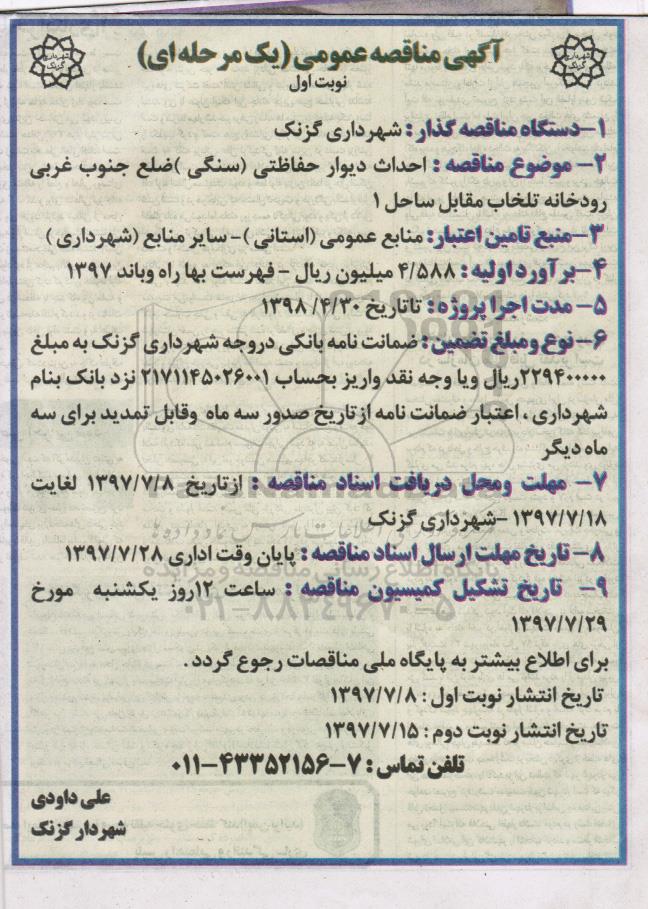 آگهی مناقصه عمومی (یک مرحله ای)
نوبت اول
شهرداری گزنک
شهرداری گزنک
۱-دستگاه مناقصه گذار: شهرداری گزنک
۲- موضوع مناقصه : احداث دیوار حفاظتی (سنگی )ضلع جنوب غربی
رودخانه تلخاب مقابل ساحل ۱
۳-منبع تامین اعتبار: منابع عمومی (استانی)- سایر منابع (شهرداری )
۴-برآورد اولیه : ۴/۵۸۸ میلیون ریال - فهرست بها راه وباند ۱۳۹۷
۵- مدت اجرا پروژه : تاتاریخ ۱۳۹۸/۴/۳۰
۶-نوع ومبلغ تضمین : ضمانت نامه بانکی دروجه شهرداری گزنک به مبلغ
۲۲۹۴۰۰۰۰۰ریال ویا وجه نقد واریز بحساب ۲۱۷۱۱۴۵۰۲۶۰۰۱ نزد بانک بنام
شهرداری ، اعتبار ضمانت نامه ازتاریخ صدور سه ماه وقابل تمدید برای سه
ماه دیگر
۷- مهلت ومحل دریافت اسناد مناقصه : ازتاریخ ۱۳۹۷/۷/۸ لغایت
۱۳۹۷/۷/۱۸ -شهرداری گزنک
۸- تاریخ مهلت ارسال اسناد مناقصه : پایان وقت اداری ۱۳۹۷/۷/۲۸
۹- تاریخ تشکیل کمیسیون مناقصه : ساعت ۱۲روز یکشنبه مورخ
۱۳۹۷/۷/۲۹
برای اطلاع بیشتر به پایگاه ملی مناقصات رجوع گردد .
تاریخ انتشار نوبت اول : ۱۳۹۷/۷/۸
تاریخ انتشار نوبت دوم : ۱۳۹۷/۷/۱۵
تلفن تماس : ۷-۴۳۳۵۲۱۵۶-۰۱۱
علی داودی
شهردار گزنک
پایگاه اطلاع رسانی مناقصه و مزایده
۰۲۱-۸۸۳۴۹۶۷۰-۵